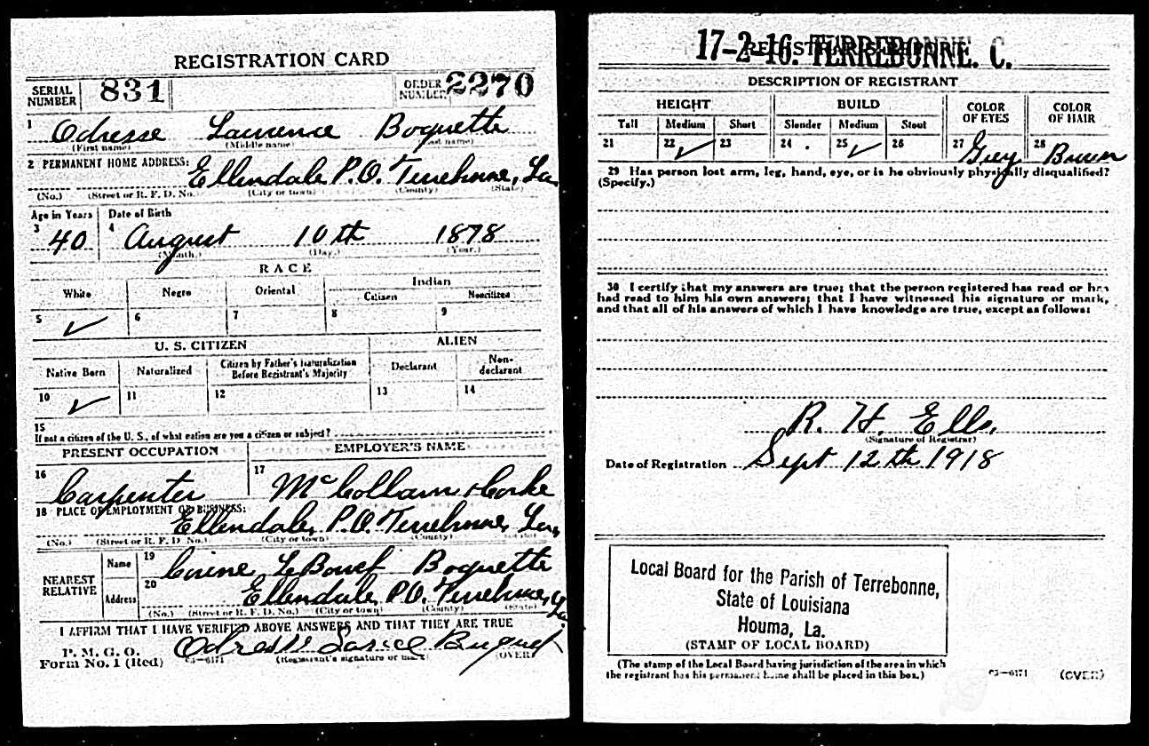 REGISTRATION CARD
SERIAL NUMBER 831 ORDER NUMBER 2270
1 Odresse Laurence Boquette
(First name) (Middle name) (Last name)
2 PERMANENT HOME ADDRESS:
Ellendale P.O. Terrebonne, La
(No.) (Street or R. F. D. No.) (City or town) (County) (State)
Age in Years Date of Birth
3 40 4 August 10th 1878
(Month.) (Day.) (Year.)
RACE
White Negro Oriental Indian
Citizen Noncitizen
5 ✓ 6 7 8 9
U. S. CITIZEN ALIEN
Native Born Naturalized Citizen by Father's Naturalization Before Registrant's Majority Declarant Non-declarant
10 ✓ 11 12 13 14
15
If not a citizen of the U. S., of what nation are you a citizen or subject?
PRESENT OCCUPATION EMPLOYER'S NAME
16 Carpenter 17 McCollam
18 PLACE OF EMPLOYMENT OR BUSINESS:
Ellendale, P.O. Terrebonne, La,
(No.) (Street or R. F. D. No.) (City or town) (County) (State)
NEAREST RELATIVE
Name 19 Corine LeBouef Boquette
Address 20 Ellendale, P.O. Terrebonne, La.
(No.) (Street or R. F. D. No.) (City or town) (County) (State)
I AFFIRM THAT I HAVE VERIFIED ABOVE ANSWERS AND THAT THEY ARE TRUE
P. M. G. O.
Form No. 1 (Red) C3—6171 (Registrant's signature or mark) (OVER)
17-2-16. TERREBONNE. C.
REGISTRAR'S REPORT
DESCRIPTION OF REGISTRANT
HEIGHT BUILD COLOR OF EYES COLOR OF HAIR
Tall Medium Short Slender Medium Stout
21 22 ✓ 23 24 25 ✓ 26 27 Grey 28 Brown
29 Has person lost arm, leg, hand, eye, or is he obviously physically disqualified?
(Specify.)
30 I certify that my answers are true; that the person registered has read or has
had read to him his own answers; that I have witnessed his signature or mark,
and that all of his answers of which I have knowledge are true, except as follows:
R. H. Ells.
(Signature of Registrar)
Date of Registration Sept 12th 1918
Local Board for the Parish of Terrebonne,
State of Louisiana
Houma, La.
(STAMP OF LOCAL BOARD)
(The stamp of the Local Board having jurisdiction of the area in which
the registrant has his permanent home shall be placed in this box.)
C3—6171 (OVER)